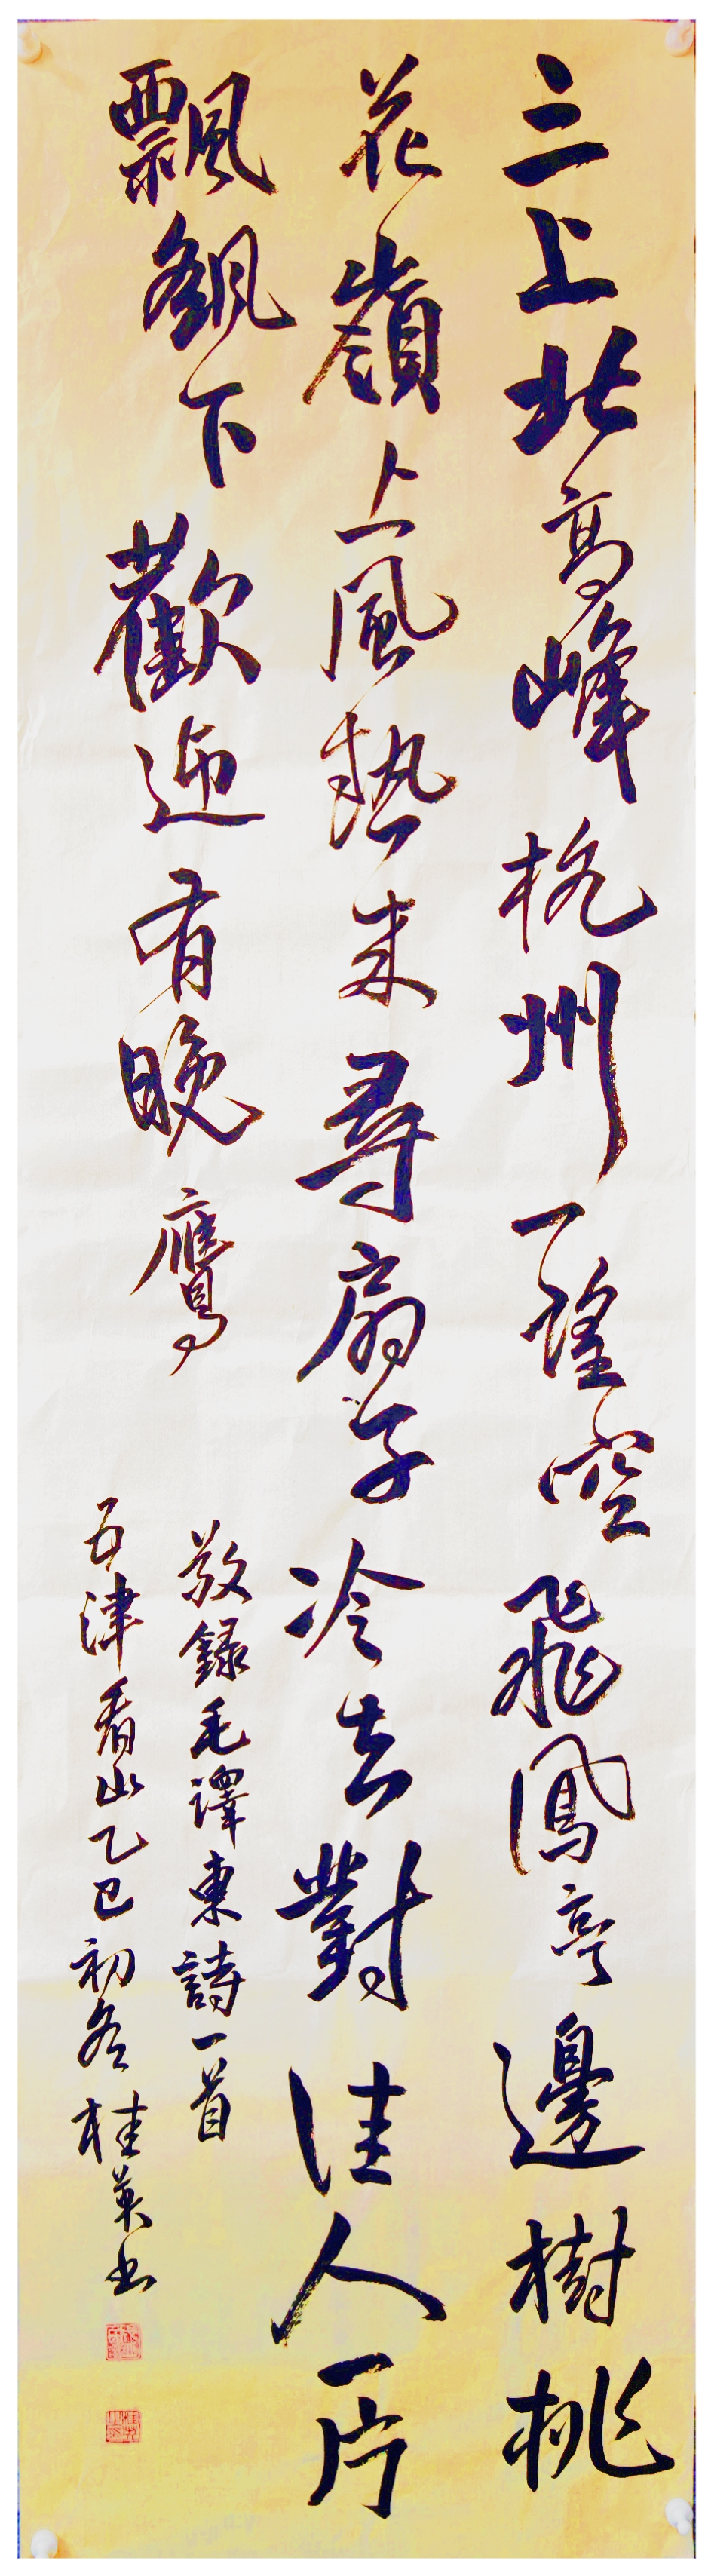 三上北高峰杭州一望空飛鳳亭邊樹桃
花嶺上風熱来尋扇子冷去對佳人一片
飄飖下歡迎有晚鷹
敬録毛澤東詩一首
五律看山乙巳初冬桂英书